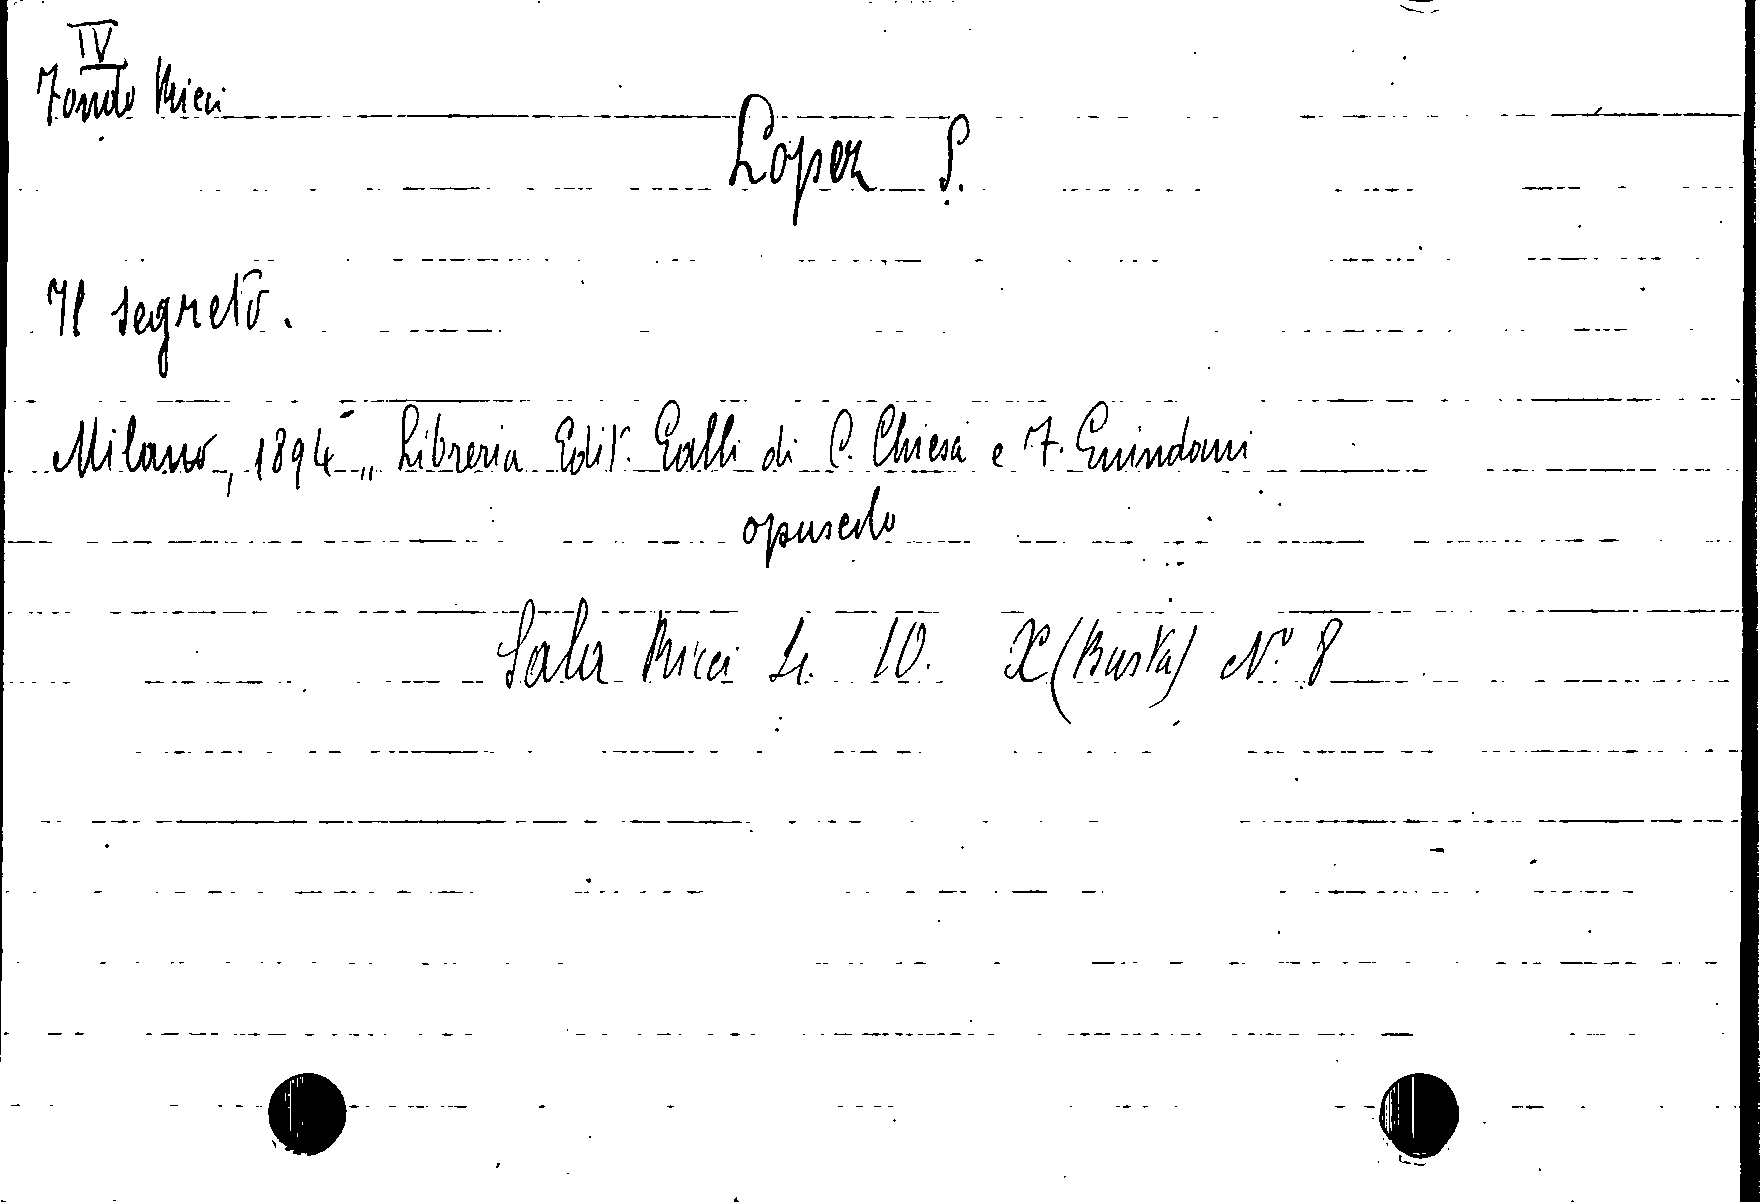 IV
Fondo Ricci
Lopez S.
Il segreto.
Milano, 1894 „ Libreria Edit. Galli di C. Chiesa e F. Guindani
opuscolo
Sala Ricci Sc. 10. X (Busta) N° 8